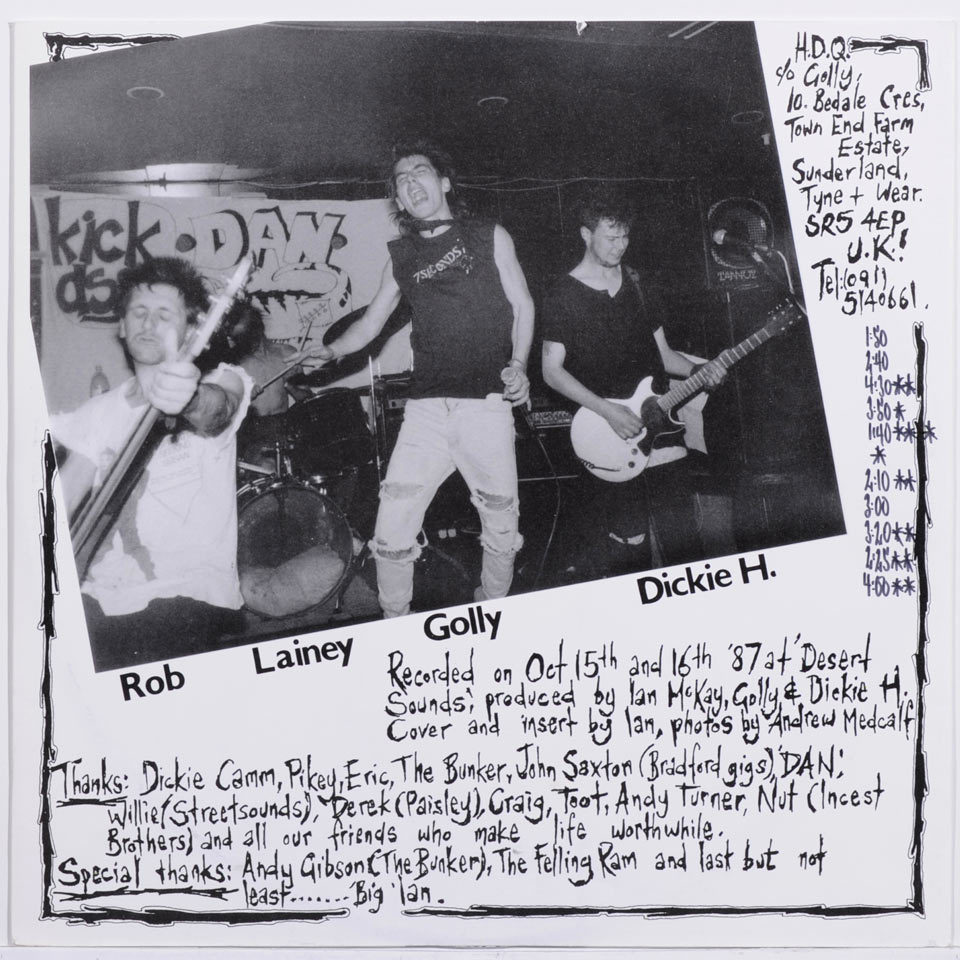 H.D.Q.
c/o Golly,
10. Bedale Cres,
Town End Farm
Estate,
Sunderland,
Tyne + Wear.
SR5 4EP.
U.K!
Tel:(091)
5140661.
kick
.DAN.
7SECONDS!
TANNOY
1:50
2:40
4:30**
3:50*
1:40***
*
2:10**
3:00
3:20**
2:25**
4:00**
Rob
Lainey
Golly
Dickie H.
Recorded on Oct 15th and 16th '87 at 'Desert
Sounds', produced by Ian McKay, Golly & Dickie H.
Cover and insert by Ian, photos by Andrew Medcalf
Thanks: Dickie Camm, Pikey, Eric, The Bunker, John Saxton (Bradford gigs), 'DAN',
Willie (Streetsounds), Derek (Paisley), Craig, Toot, Andy Turner, Nut (Incest
Brothers) and all our friends who make life worthwhile.
Special thanks: Andy Gibson (The Bunker), The Felling Ram and last but not
least....... Big Ian.